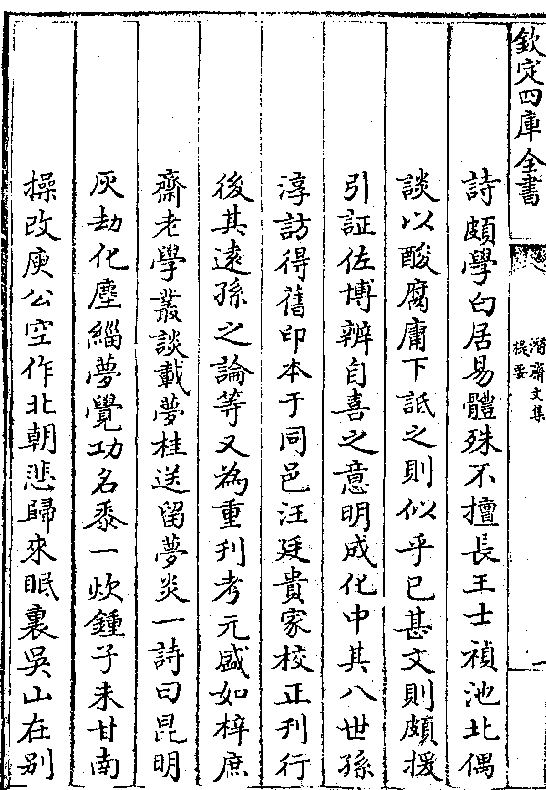 欽定四庫全書
潛齋文集
提要
詩頗學白居易體殊不擅長王士禎池北偶
談以酸腐庸下詆之則似乎已甚文則頗援
引証佐博辨自喜之意明成化中其八世孫
淳訪得舊印本于同邑汪廷貴家校正刊行
後其遠孫之論等又為重刊考元盛如梓庶
齋老學叢談載夢桂送留夢炎一詩曰昆明
灰劫化塵緇夢覺功名黍一炊鍾子未甘南
操改庾公空作北朝悲歸來眠裏吳山在别